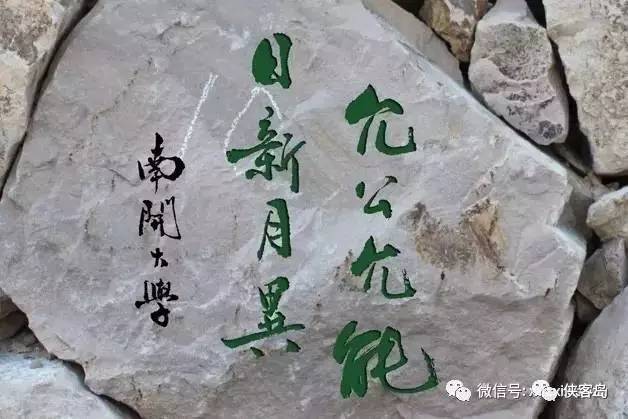 允公允能
日新月異
南開大學
微信号:
侠客岛